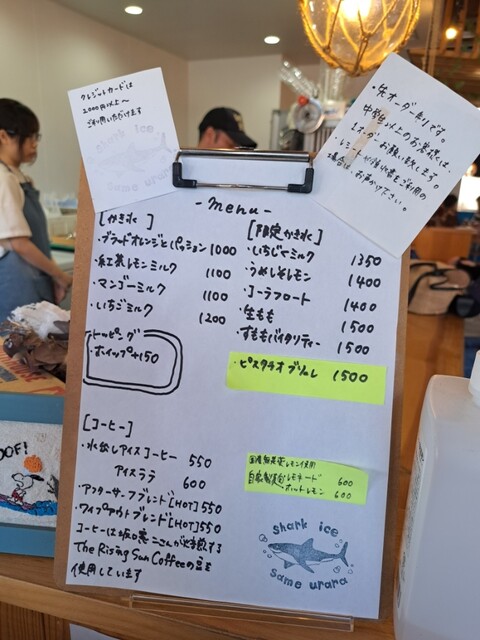 クレジットカードは
2,000円以上〜
ご利用いただけます
shark ice
・先オーダー制です。
中学生以上のお客様は、
1オーダーお願い致します。
レシートや領収書をご利用の
場合は、お声がけ下さい。
- menu -
[かき氷]
・ブラッドオレンジとパッション 1000
・紅茶レモンミルク 1100
・マンゴーミルク 1100
・いちごミルク 1200
トッピング
ホイップ+150
[限定かき氷]
・いちじくミルク 1350
・うめしそレモン 1400
・コーラフロート 1400
・生もも 1500
・すももバイタリティー 1500
・ピスタチオブリュレ 1500
[コーヒー]
・水出しアイスコーヒー 550
アイスラテ 600
・アフターサーフブレンド[HOT] 550
・ワイプアウトブレンド[HOT] 550
コーヒーは坂口憲二さんが焙煎する
The Rising Sun Coffeeの豆を
使用しています
国産無農薬レモン使用
自家製レモネード 600
・ホットレモン 600
shark ice
same urara
OOF!